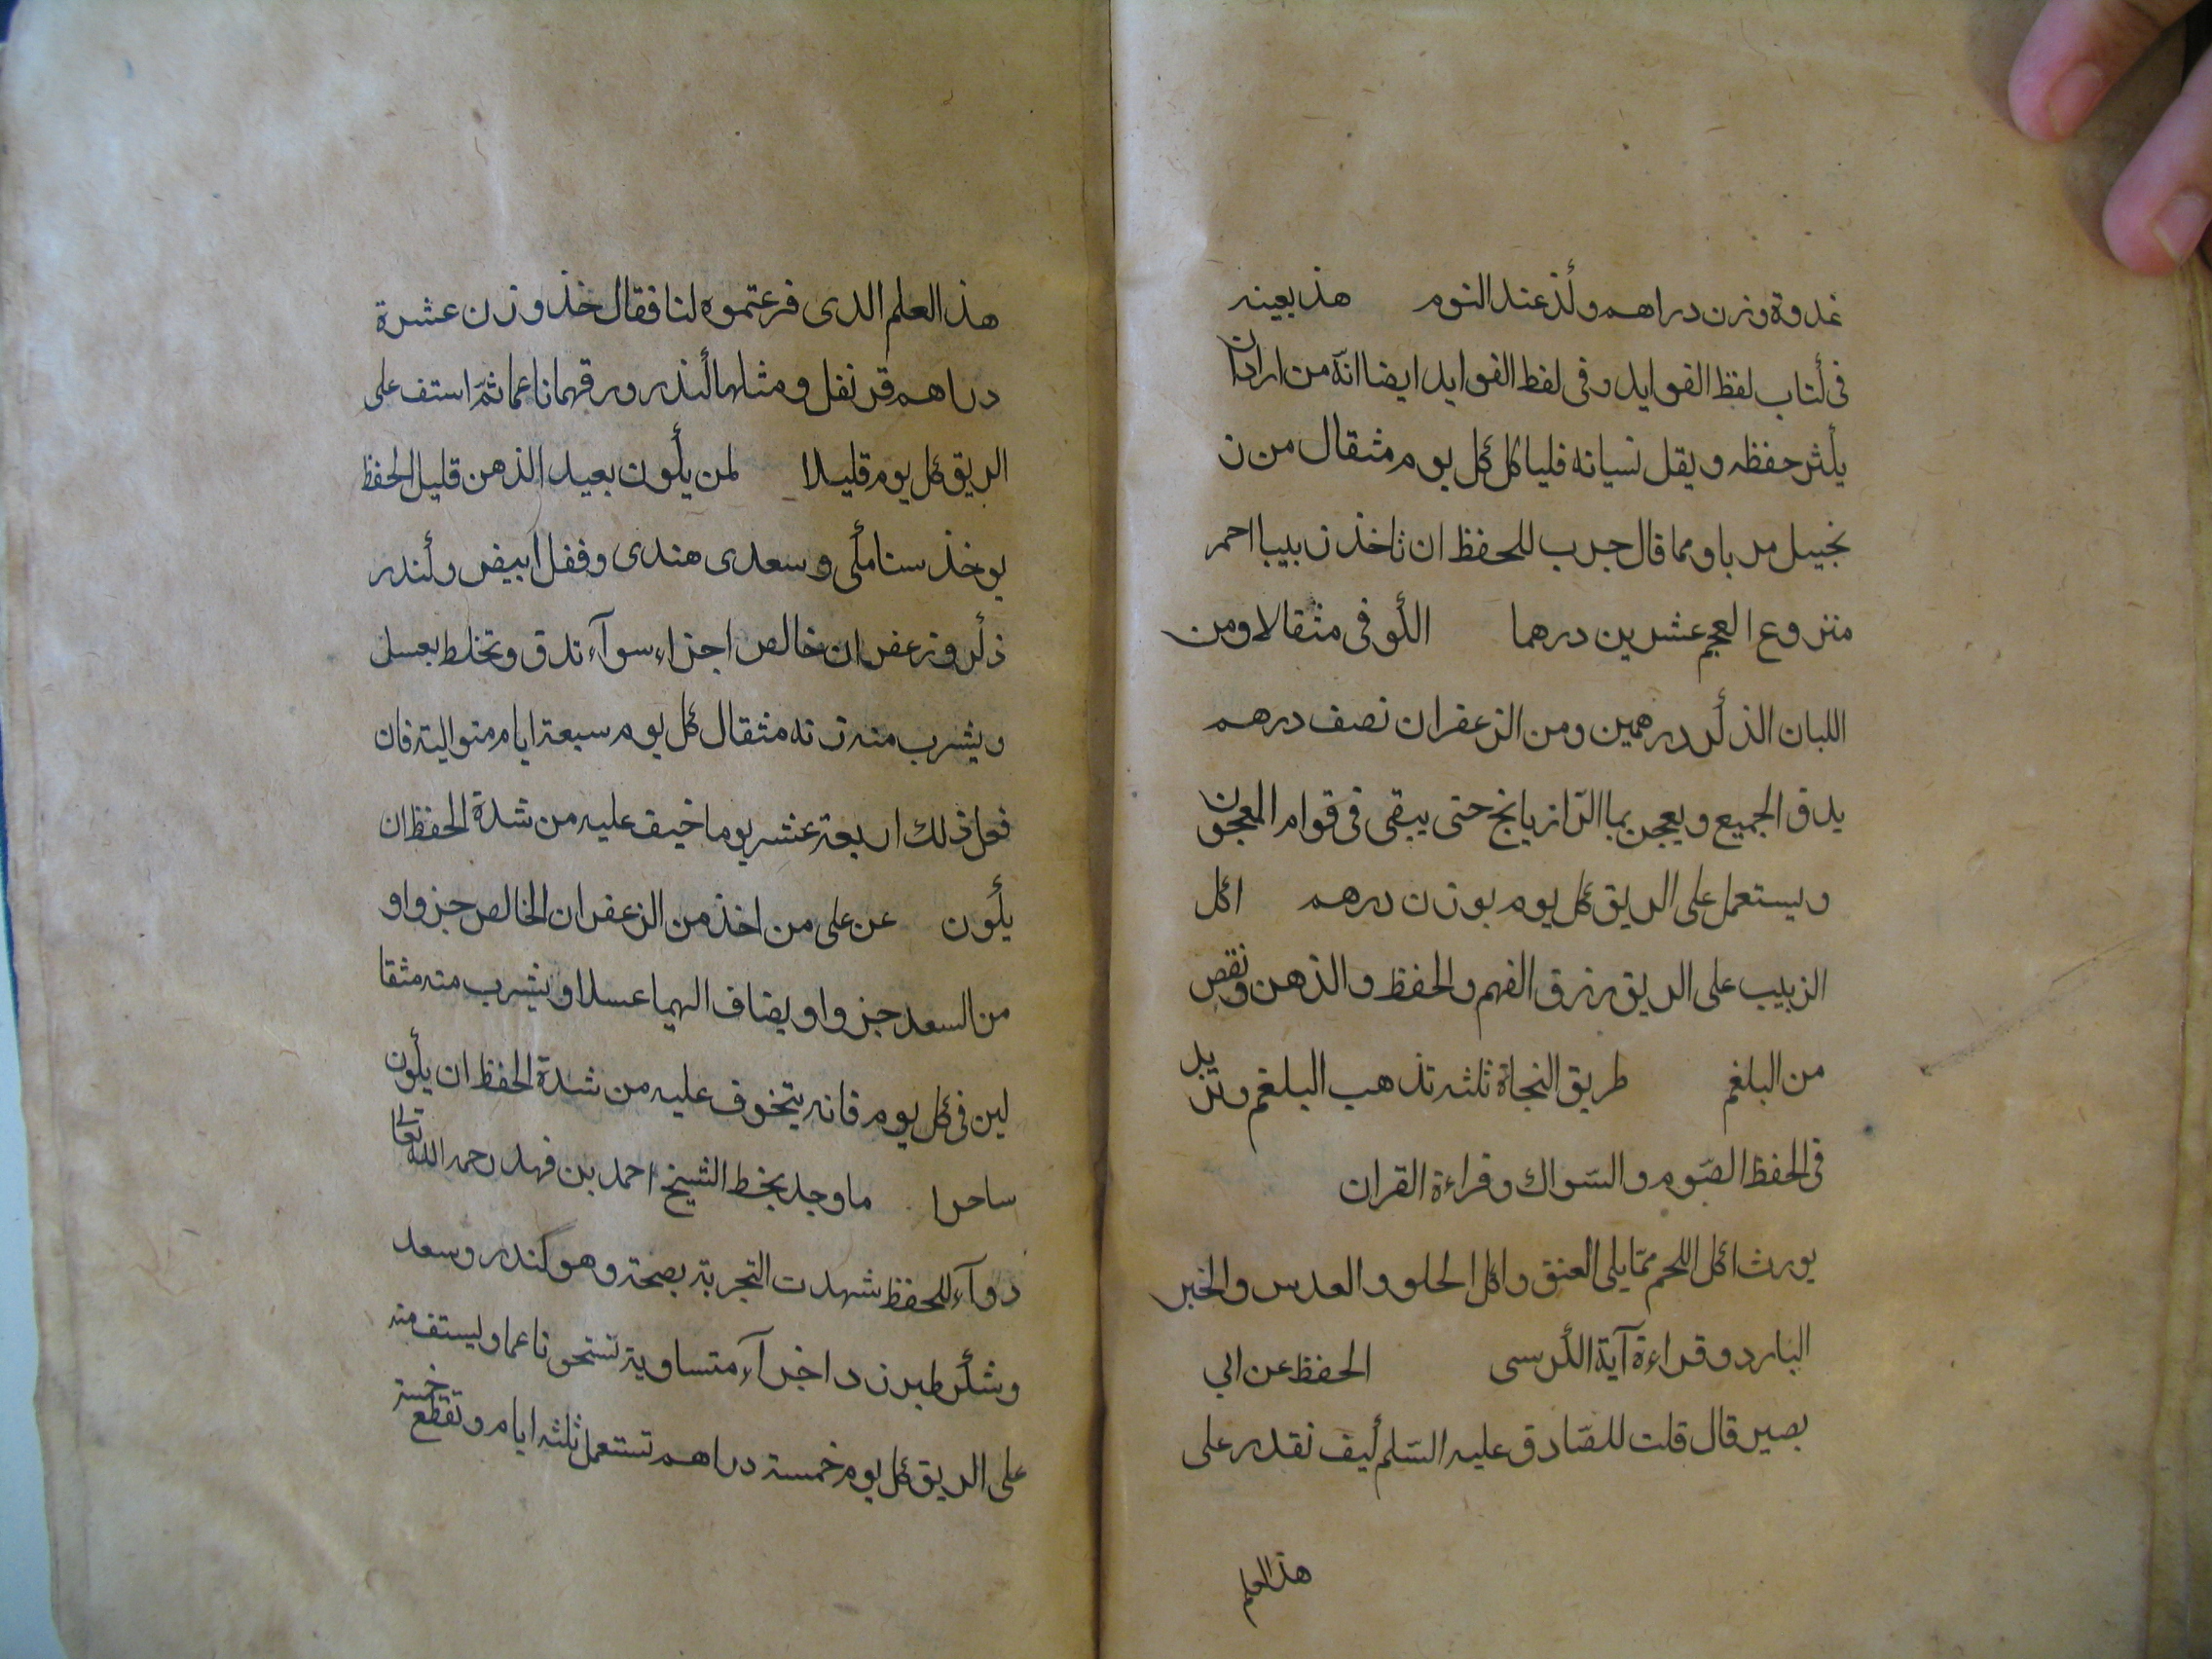 غدوة وزن دراهم ولذ عند النوم هذ بعينه
فى كتاب لفظ الفوايد وفى لفظ الفوايد ايضا انّه من اراد ان
يكثر حفظه ويقل نسيانه فلياكل كل يوم مثقال من ز
نجبيل مربا ومما قال جرب للحفظ ان تاخذ زبيبا احمر
منزوع العجم عشرين درهما الكوفى مثقالا ومن
اللبان الذكر درهمين ومن الزعفران نصف درهم
يدق الجميع ويعجن بما الرّازيانج حتى يبقى فى قوام المعجون
ويستعمل على الريق كل يوم بوزن درهم اكل
الزبيب على الريق رزق الفهم والحفظ والذهن ونقص
من البلغم طريق النجاة ثلثه تذهب البلغم وتزيد
فى الحفظ الصّوم والسّواك وقراءة القران
يورث اكل اللحم ممّا يلى العنق واكل الحلو والعدس والخبز
البارد وقراءة آية الكرسى الحفظ عن ابي
بصير قال قلت للصّادق عليه السّلم كيف نقدر على
هذ العلم
هذ العلم الدى فرعتموه لنا فقال خذ وزن عشرة
دراهم قرنفل ومثلها كندر ورقهما ناعما ثمّ استف على
الريق كل يوم قليلا لمن يكون بعيد الذهن قليل الحفظ
يوخذ سنا مكى وسعدى هندى وففل ابيض وكندر
ذكر وزعفران خالص اجزاء سوآء تدق وتخلط بعسل
ويشرب منه زنه مثقال كل يوم سبعة ايام متواليته فان
فعل ذلك اربعة عشر يوما خيف عليه من شدة الحفظ ان
يكون عن على من اخذ من الزعفران الخالص جزوا و
من السعد جزوا ويضاف اليهما عسلا ويشرب منه مثقا
لين فى كل يوم فانه يتخوف عليه من شدة الحفظ ان يكون
ساحرا ما وجد بخط الشيخ احمد بن فهد رحمه الله تعالى
دوآء للحفظ شهدت التجربة بصحة وهو كندر وسعد
وشكر طبرزد اجزآء متساوية تستحق ناعما وليستف منه
على الريق كل يوم خمسة دراهم تستعمل ثلثه ايام وتقطع خمسة